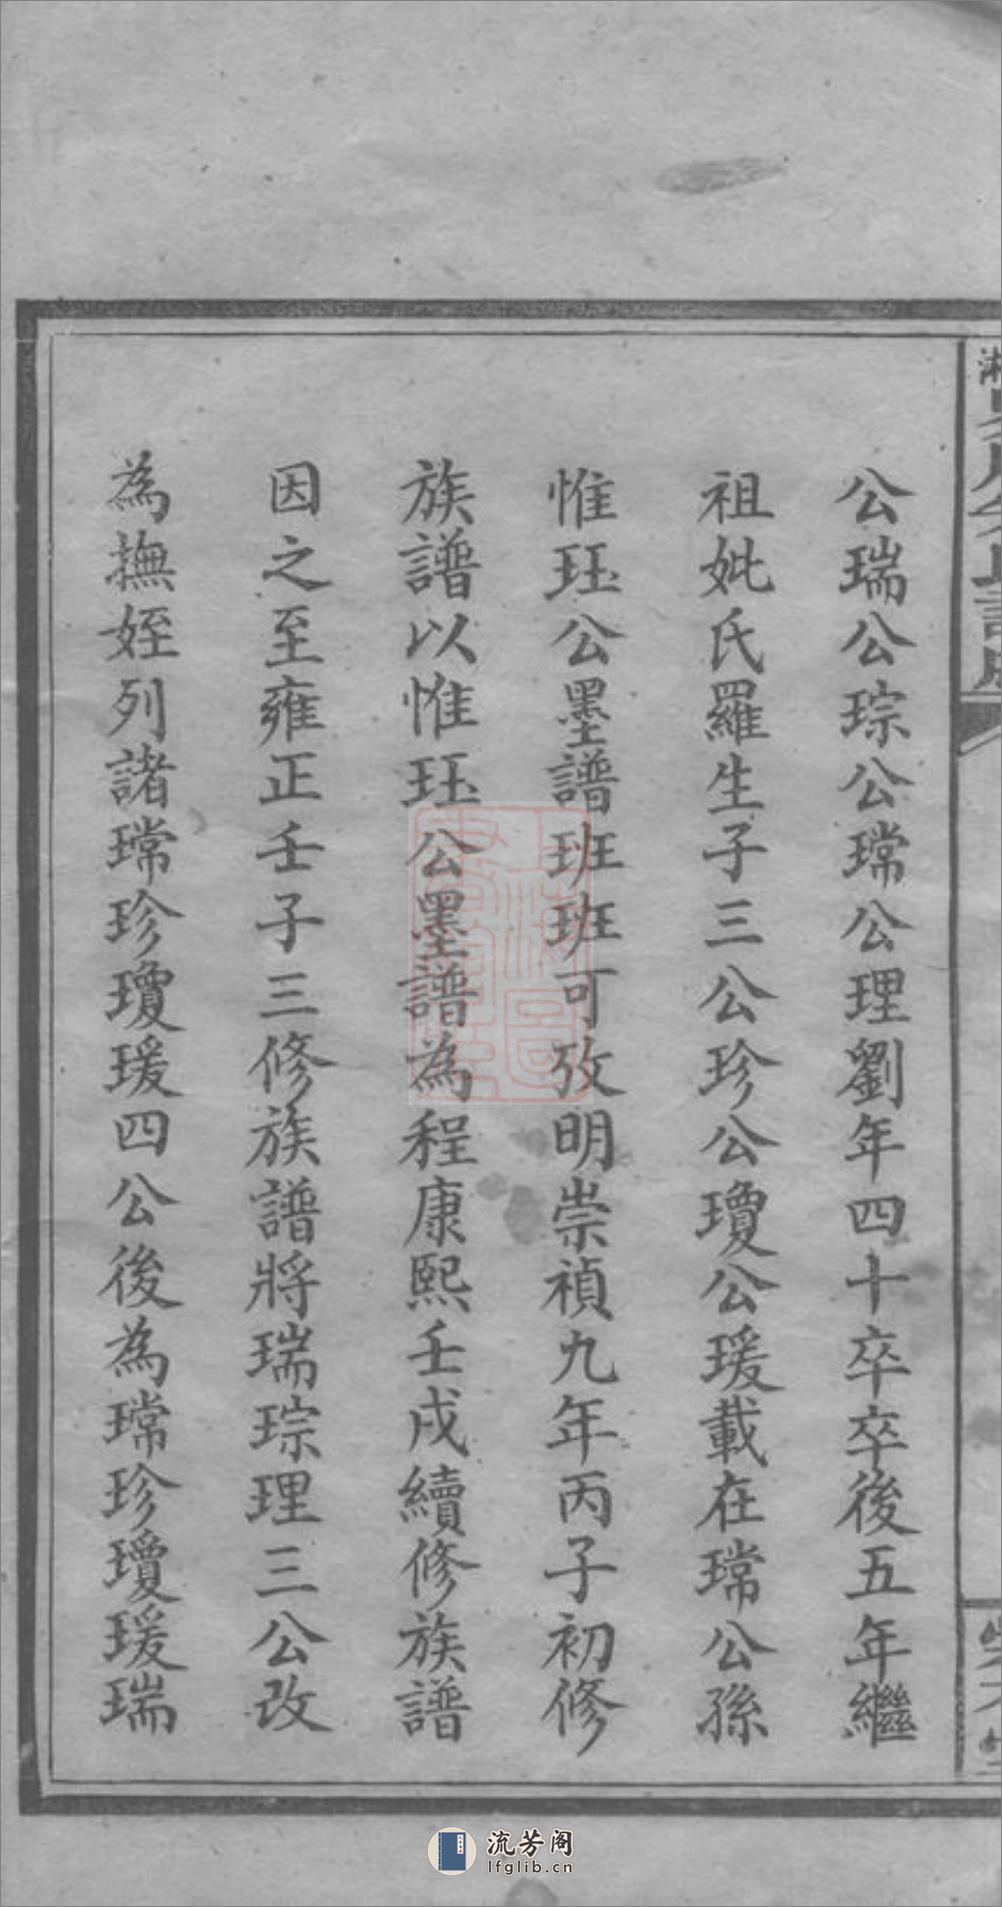 公瑞公琮公瑺公理劉年四十卒卒後五年繼
祖妣氏羅生子三公珍公瓊公瑗載在瑺公孫
惟珏公墨譜班班可攷明崇禎九年丙子初修
族譜以惟珏公墨譜為程康熙壬戌續修族譜
因之至雍正壬子三修族譜將瑞琮理三公改
為撫姪列諸瑺珍瓊瑗四公後為瑺珍瓊瑗瑞
流芳阁
lfglib.cn